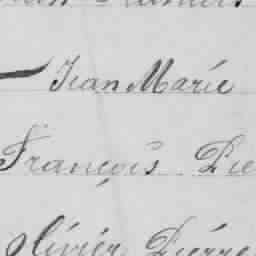 Jean Marie
François Pie
Olivier Pierre